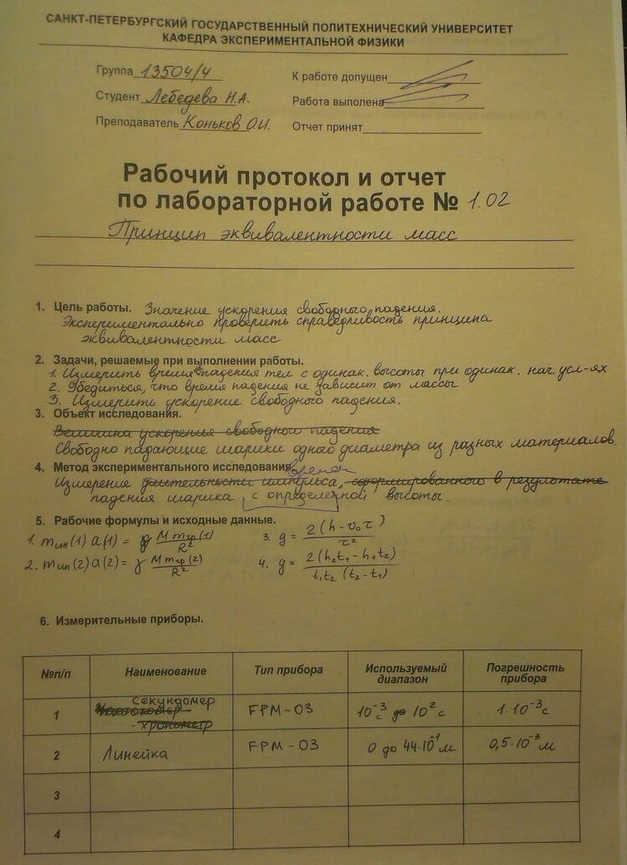 САНКТ-ПЕТЕРБУРГСКИЙ ГОСУДАРСТВЕННЫЙ ПОЛИТЕХНИЧЕСКИЙ УНИВЕРСИТЕТ
КАФЕДРА ЭКСПЕРИМЕНТАЛЬНОЙ ФИЗИКИ
Группа 13504/4 К работе допущен
Студент Лебедева Н.А. Работа выполена
Преподаватель Коньков О.И. Отчет принят
Рабочий протокол и отчет
по лабораторной работе № 1.02
Принцип эквивалентности масс
1. Цель работы. Значение ускорения свободного падения.
Экспериментально проверить справедливость принципа
эквивалентности масс
2. Задачи, решаемые при выполнении работы.
1. Измерить время падения тел с одинак. высоты при одинак. нач. усл-ях
2. Убедиться, что время падения не зависит от массы
3. Измерить ускорение свободного падения.
3. Объект исследования.
Величина ускорения свободный падения
Свободно падающие шарики одного диаметра из разных материалов.
4. Метод экспериментального исследования.
времени
Измерение длительности импульса, сформированного в результате
падения шарика с определенной высоты
5. Рабочие формулы и исходные данные.
1. mин(1) a(1) = γ M mгр(1) / R² 3. g = 2(h - v₀τ) / τ²
2. mин(2) a(2) = γ M mгр(2) / R² 4. g = 2(h₂t₁ - h₁t₂) / t₁t₂ (t₂ - t₁)
6. Измерительные приборы.
№п/п Наименование Тип прибора Используемый диапазон Погрешность прибора
1 секундомер хронометр FPM-03 10⁻³ с до 10² с 1·10⁻³ с
2 Линейка FPM-03 0 до 44·10⁻¹ м 0,5·10⁻³ м
3
4